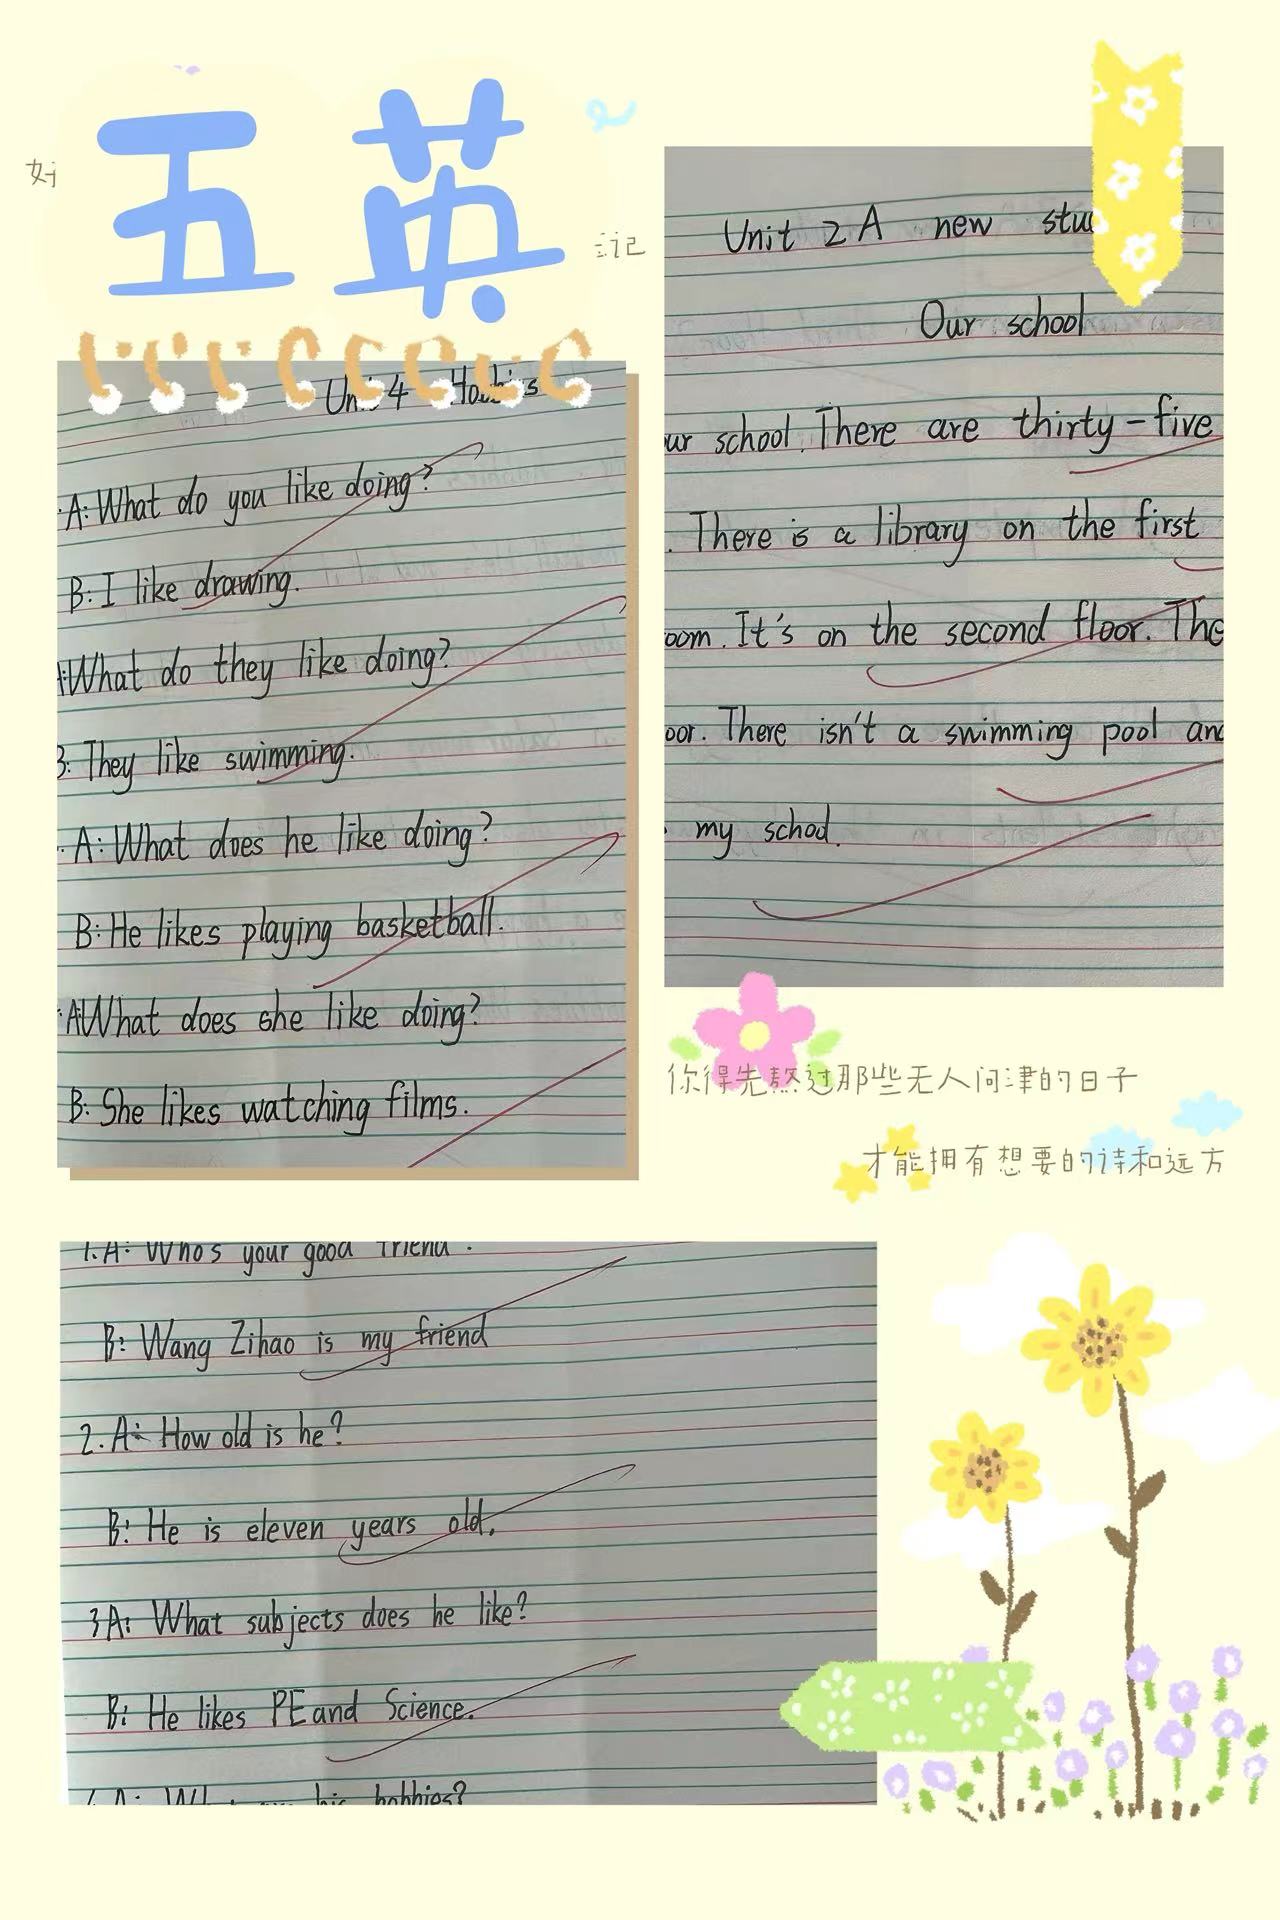 五英
好
记
Unit 4 Hobbies
A: What do you like doing?
B: I like drawing.
A: What do they like doing?
B: They like swimming.
A: What does he like doing?
B: He likes playing basketball.
A: What does she like doing?
B: She likes watching films.
Unit 2 A new stu
Our school
ur school. There are thirty-five
. There is a library on the first
oom. It's on the second floor. The
oor. There isn't a swimming pool and
my school.
你得先熬过那些无人问津的日子
才能拥有想要的诗和远方
1. A: Who's your good friend.
B: Wang Zihao is my friend
2. A: How old is he?
B: He is eleven years old.
3 A: What subjects does he like?
B: He likes PE and Science.
A: his hobbies?